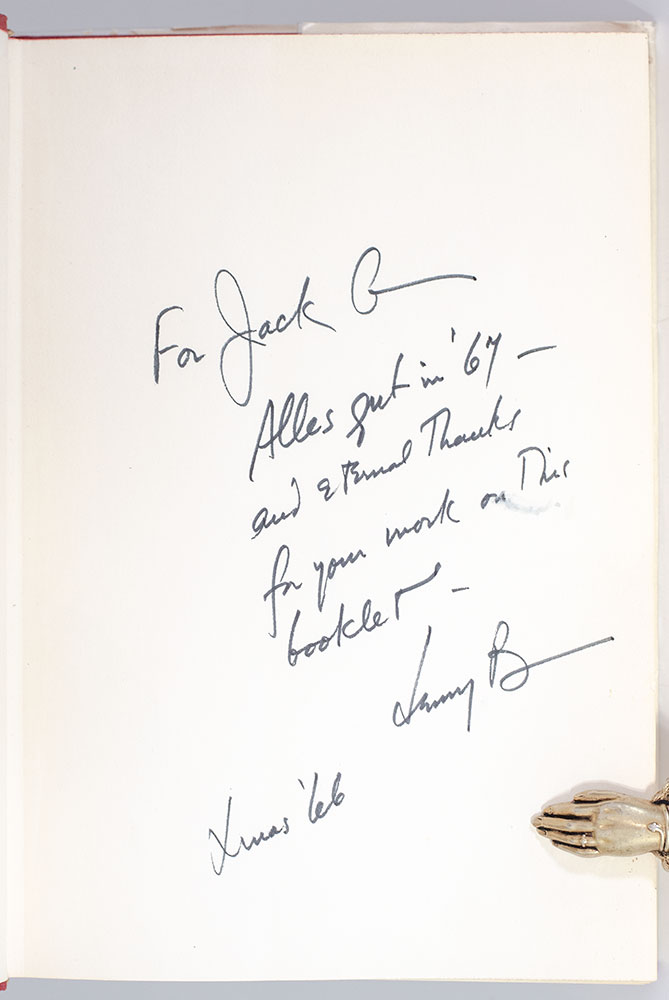 For Jack G
Alles gut in '67 —
and eternal Thanks
for your work on This
booklet —
Lenny B
Xmas '66